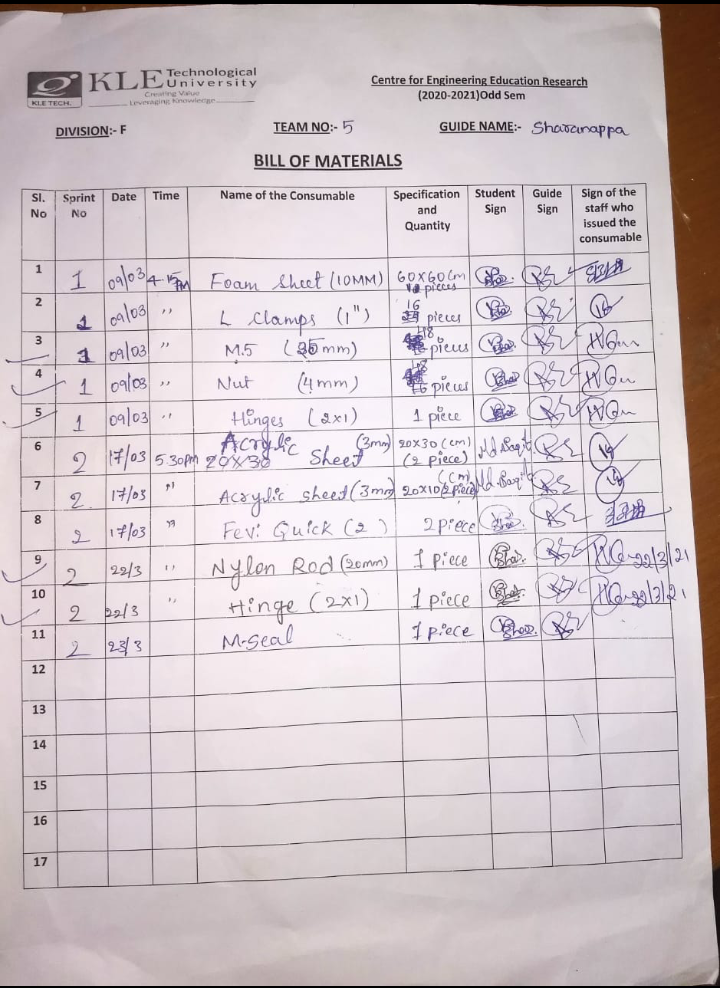 KLE Technological University
Creating Value
Leveraging Knowledge
KLE TECH.
Centre for Engineering Education Research
(2020-2021)Odd Sem
DIVISION:- F TEAM NO:- 5 GUIDE NAME:- Sharanappa
BILL OF MATERIALS
Sl. No Sprint No Date Time Name of the Consumable Specification and Quantity Student Sign Guide Sign Sign of the staff who issued the consumable
1 1 09/03 4-15 PM Foam Sheet (10MM) 60X60 Cm pieces
2 1 09/03 '' L clamps (1") 16 pieces
3 1 09/03 '' M.5 (35mm) 48 pieces
4 1 09/03 '' Nut (4mm) 48 pieces
5 1 09/03 '' Hinges (2x1) 1 piece
6 2 17/03 5.30pm Acrylic Sheet (3mm) 20X30 20X30 (cm) (2 piece)
7 2 17/03 '' Acrylic sheet (3mm) 20X10 (cm) (2 piece)
8 2 17/03 '' Fevi Quick (2) 2 piece
9 2 22/3 '' Nylon Rod (20mm) 1 piece 22/3/21
10 2 22/3 '' Hinge (2x1) 1 piece 22/3/21
11 2 23/3 M-Seal 1 piece
12
13
14
15
16
17